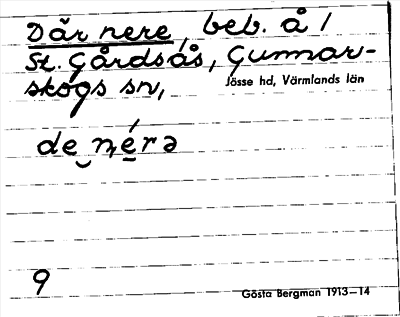 Där nere, beb. å /
St. Gårdsås, Gunnar-
skogs sn,
Jösse hd, Värmlands län
de néra
9
Gösta Bergman 1913–14